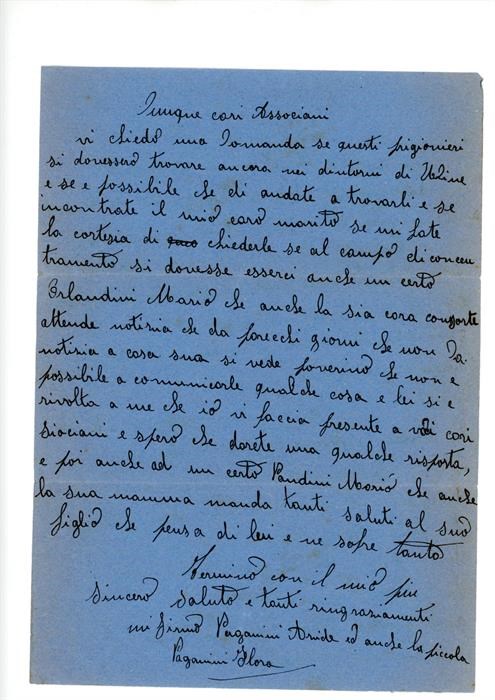 Dunque cari Associani
vi chiedo una Domanda se questi prigionieri
si dovessero trovare ancora nei dintorni di Udine
e se e possibile che di andate a trovarli e se
incontrate il mio caro marito se mi fate
la cortesia di chiederle se al campo di concen
tramento si dovesse esserci anche un certo
Orlandini Mario che anche la sia cora consorte
attende notizia che da parecchi giorni che non da
notizia a casa sua si vede poverino che non e
possibile a comunicarle qualche cosa e lei si e
rivolta a me che io vi faccia presente a voi cari
Siociani e spero che darete una qualche risposta,
e poi anche ad un certo Pandini Mario che anche
la sua mamma manda tanti saluti al suo
figlio che pensa di lui e ne sofre tanto
Termino con il mio piu
sincero saluto e tanti ringraziamenti
mi firmo Paganini Aside ed anche la piccola
Paganini Flora